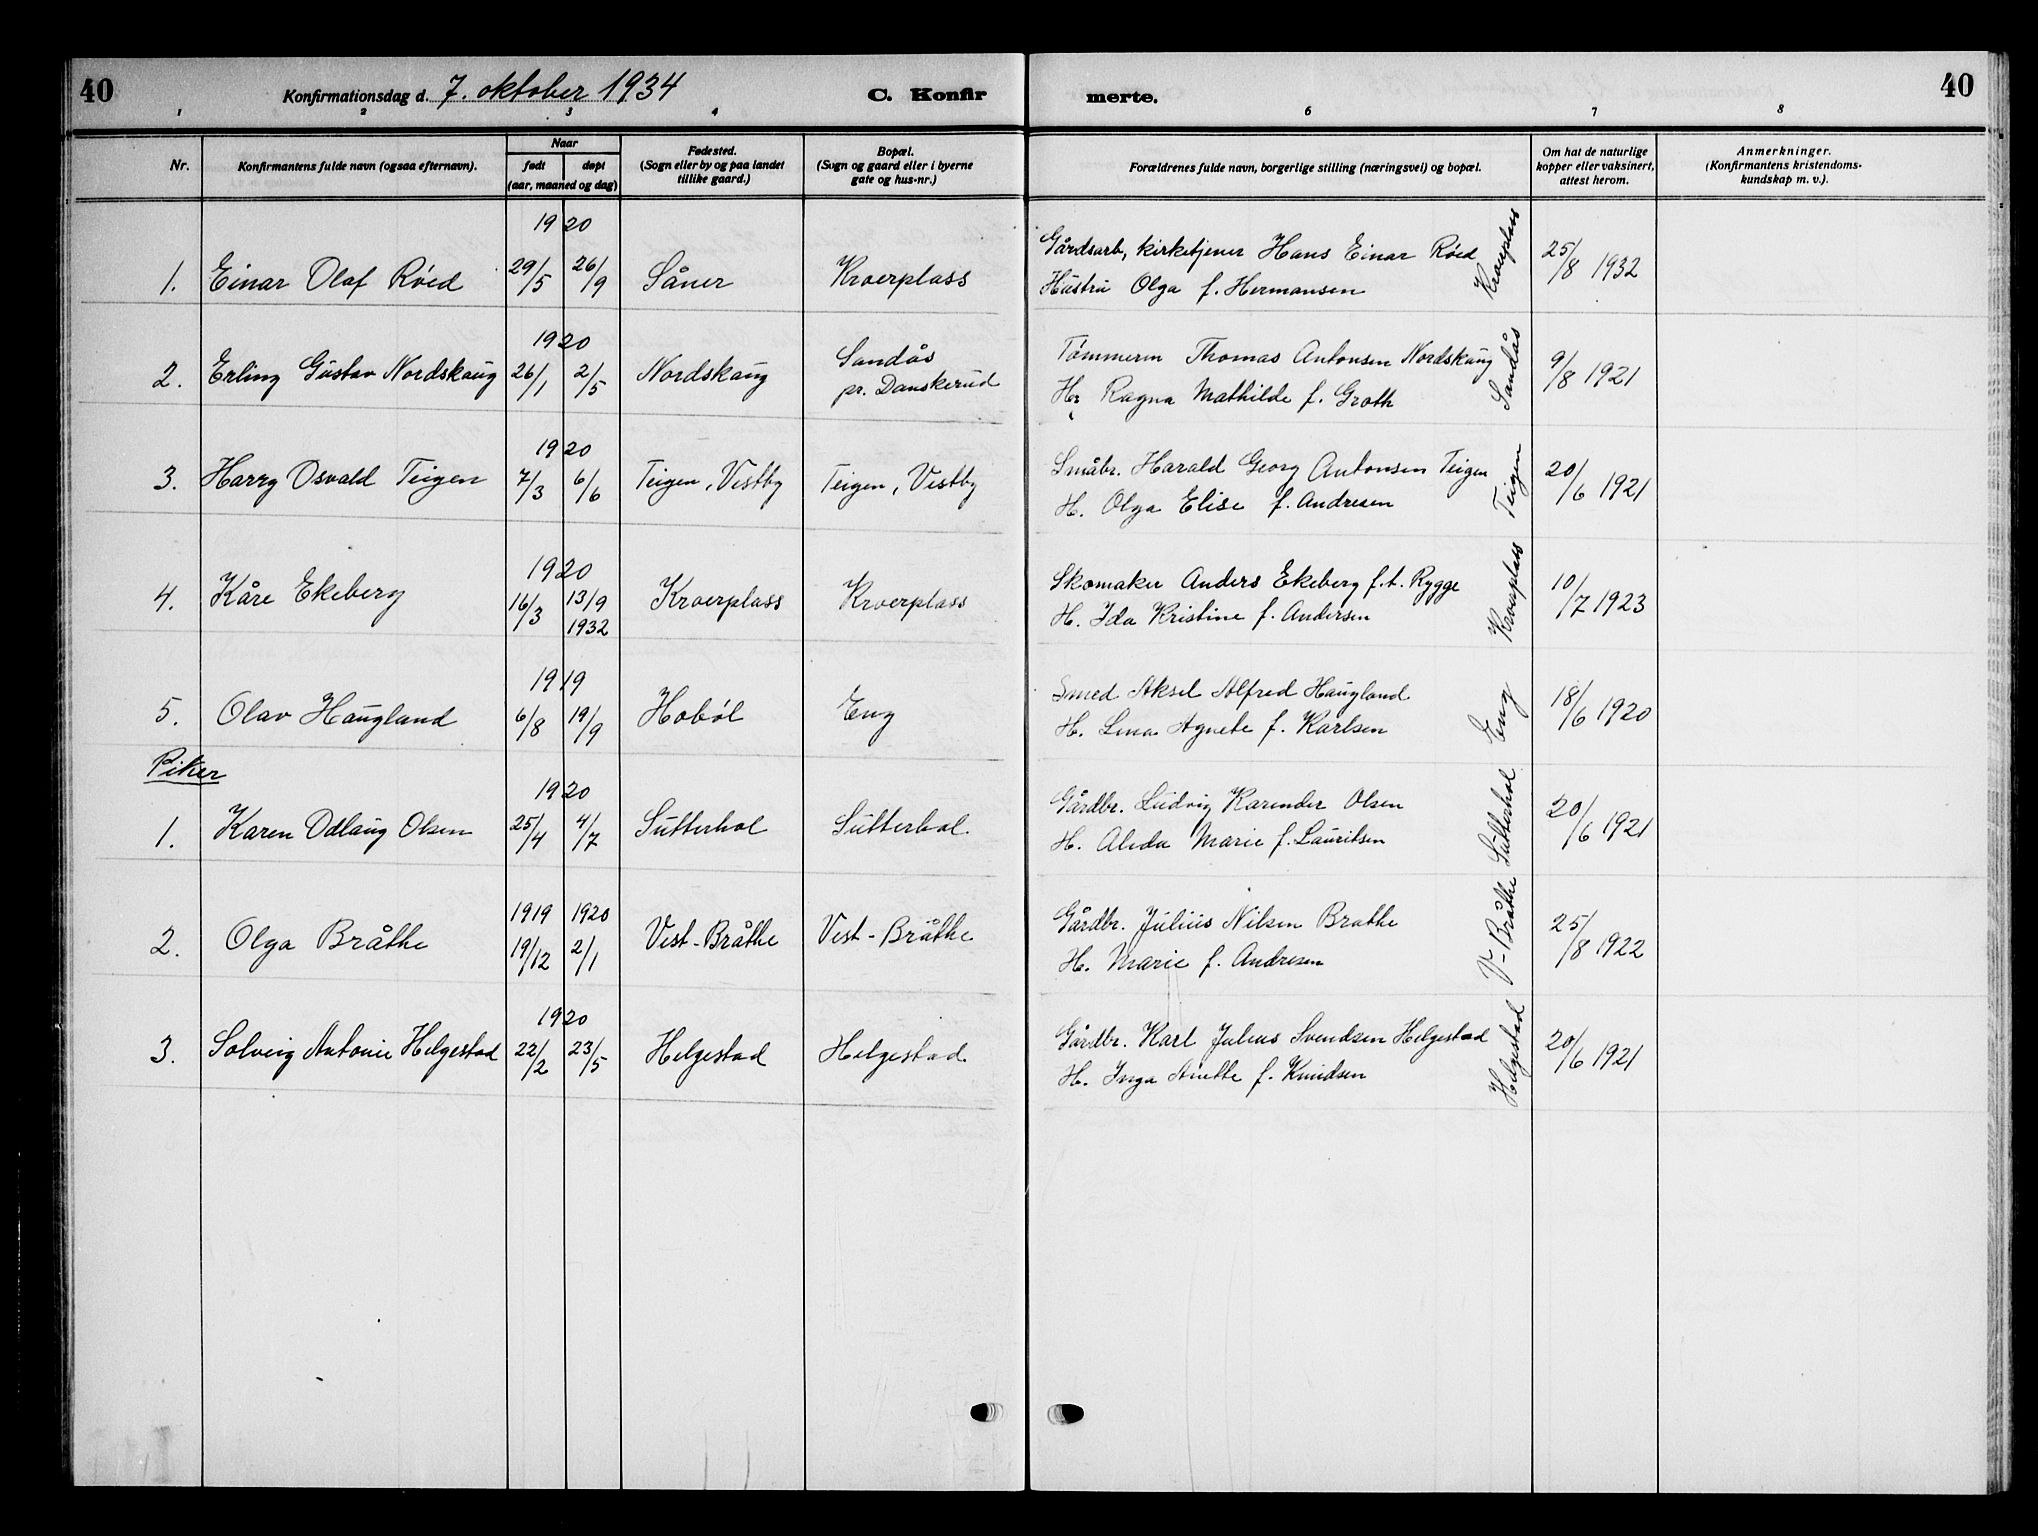 40 Konfirmationsdag d. 7. oktober 1934 C. Konfirmerte. 40
1 2 3 4 6 7 8
Nr.
Konfirmantens fulde navn (ogsaa efternavn).
Naar
født døpt
(aar, maaned og dag)
Fødested.
(Sogn eller by og paa landet
tillike gaard.)
Bopæl.
(Sogn og gaard eller i byerne
gate og hus-nr.)
Forældrenes fulde navn, borgerlige stilling (næringsvei) og bopæl.
Om hat de naturlige
kopper eller vaksinert,
attest herom.
Anmerkninger.
(Konfirmantens kristendoms-
kundskap m. v.).
1920
1. Einar Olaf Röed 29/5 26/9 Såner Kroerplass
Gårdsarb, kirketjener Hans Einar Röed
Hustru Olga f. Hermansen
Kroerplass
25/8 1932
1920
2. Erling Gustav Nordskaug 26/1 2/5 Nordskaug Sandås
pr. Danskerud
Tömmerm Thomas Antonsen Nordskaug
H. Ragna Mathilde f. Groth
Sandås
9/8 1921
1920
3. Harry Osvald Teigen 7/3 6/6 Teigen, Vestby Teigen, Vestby
Småbr. Harald Georg Antonsen Teigen
H. Olga Elise f. Andresen
Teigen
20/6 1921
1920
4. Kåre Ekeberg 16/3 13/9 1932 Kroerplass Kroerplass
Skomaker Anders Ekeberg f.t. Rygge
H. Ida Kristine f. Andersen
Kroerplass
10/7 1923
1919
5. Olav Haugland 6/8 19/9 Hoböl Eng
Smed Aksel Alfred Haugland
H. Lina Agnete f. Karlsen
Eng
18/6 1920
Piker
1920
1. Karen Odlaug Olsen 25/4 4/7 Sutterhol Sutterhol.
Gårdbr. Ludvig Karender Olsen
H. Alida Marie f. Lauritsen
Sutterhol
20/6 1921
1919 1920
2. Olga Bråthe 19/12 2/1 Vest-Bråthe Vest-Bråthe
Gårdbr. Julius Nilsen Brathe
H. Marie f. Andresen
V-Bråthe
25/8 1922
1920
3. Solveig Antonie Helgestad 22/2 23/5 Helgestad Helgestad
Gårdbr. Karl Julius Svendsen Helgestad
H. Inga Anette f. Knudsen
Helgestad
20/6 1921